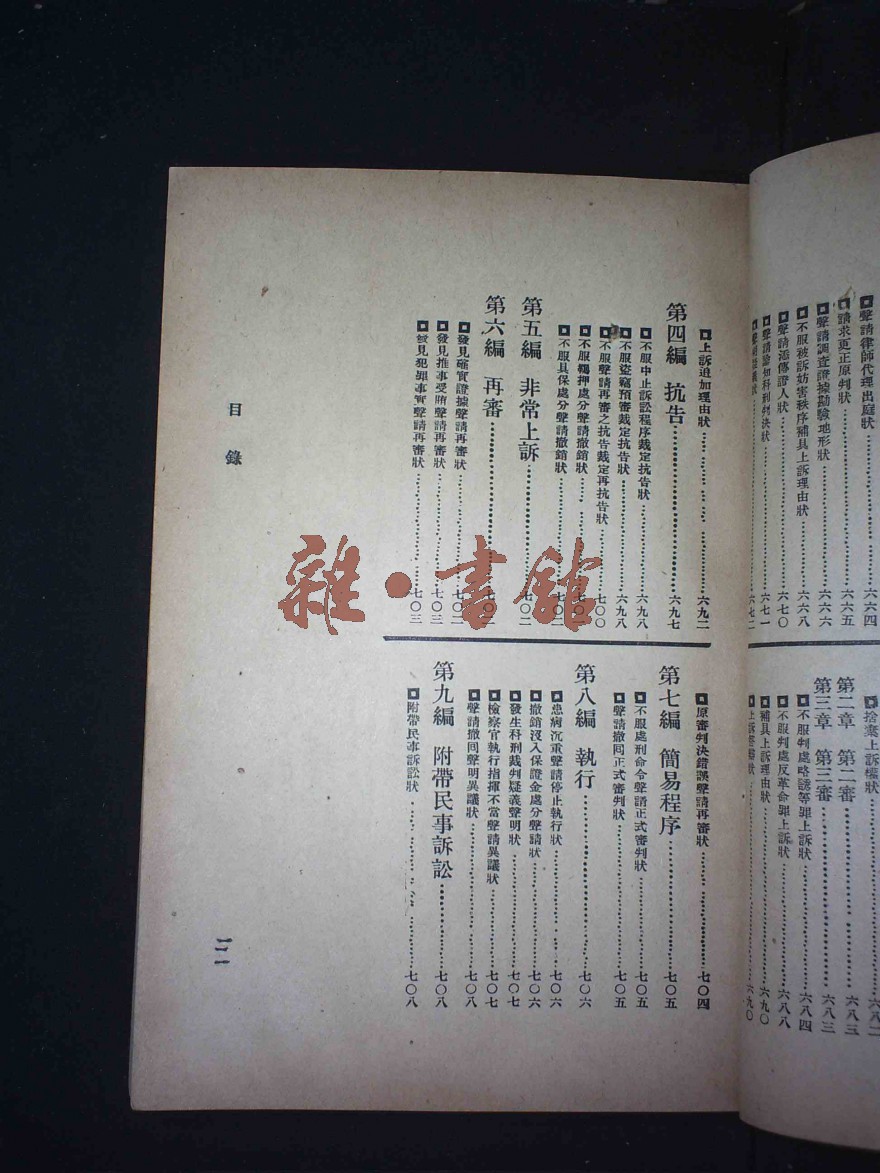 聲請律師代理出庭狀⋯⋯六六四
請求更正原判狀⋯⋯六六五
聲請調查證據勘驗地形狀⋯⋯六六六
不服被訴妨害秩序補具上訴理由狀⋯⋯六六八
聲請添傳證人狀⋯⋯六七〇
聲請諭知科刑判決狀⋯⋯六七一
捨棄上訴權狀⋯⋯六八二
第二章 第二審⋯⋯六八三
第三章 第三審⋯⋯六八三
不服判處略誘等罪上訴狀⋯⋯六八四
不服判處反革命罪上訴狀⋯⋯六八八
補具上訴理由狀⋯⋯六九〇
上訴答辯狀⋯⋯六九〇
上訴追加理由狀⋯⋯六九二
第四編 抗告⋯⋯六九七
不服中止訴訟程序裁定抗告狀⋯⋯六九八
不服盜竊預審裁定抗告狀⋯⋯六九八
不服聲請再審之抗告裁定再抗告狀⋯⋯七〇〇
不服羈押處分聲請撤銷狀⋯⋯七〇一
不服具保處分聲請撤銷狀⋯⋯七〇二
第五編 非常上訴⋯⋯七〇二
第六編 再審⋯⋯七〇二
發見確實證據聲請再審狀⋯⋯七〇二
發見推事受賄聲請再審狀⋯⋯七〇三
發見犯罪事實聲請再審狀⋯⋯七〇三
原審判決錯誤聲請再審狀⋯⋯七〇四
第七編 簡易程序⋯⋯七〇五
不服處刑命令聲請正式審判狀⋯⋯七〇五
聲請撤回正式審判狀⋯⋯七〇五
第八編 執行⋯⋯七〇六
患病沉重聲請停止執行狀⋯⋯七〇六
撤銷沒入保證金處分聲請狀⋯⋯七〇六
發生科刑裁判疑義聲明狀⋯⋯七〇七
檢察官執行指揮不當聲請異議狀⋯⋯七〇七
聲請撤回聲明異議狀⋯⋯七〇八
第九編 附帶民事訴訟⋯⋯七〇八
附帶民事訴訟狀⋯⋯七〇八
目錄
雜·書館